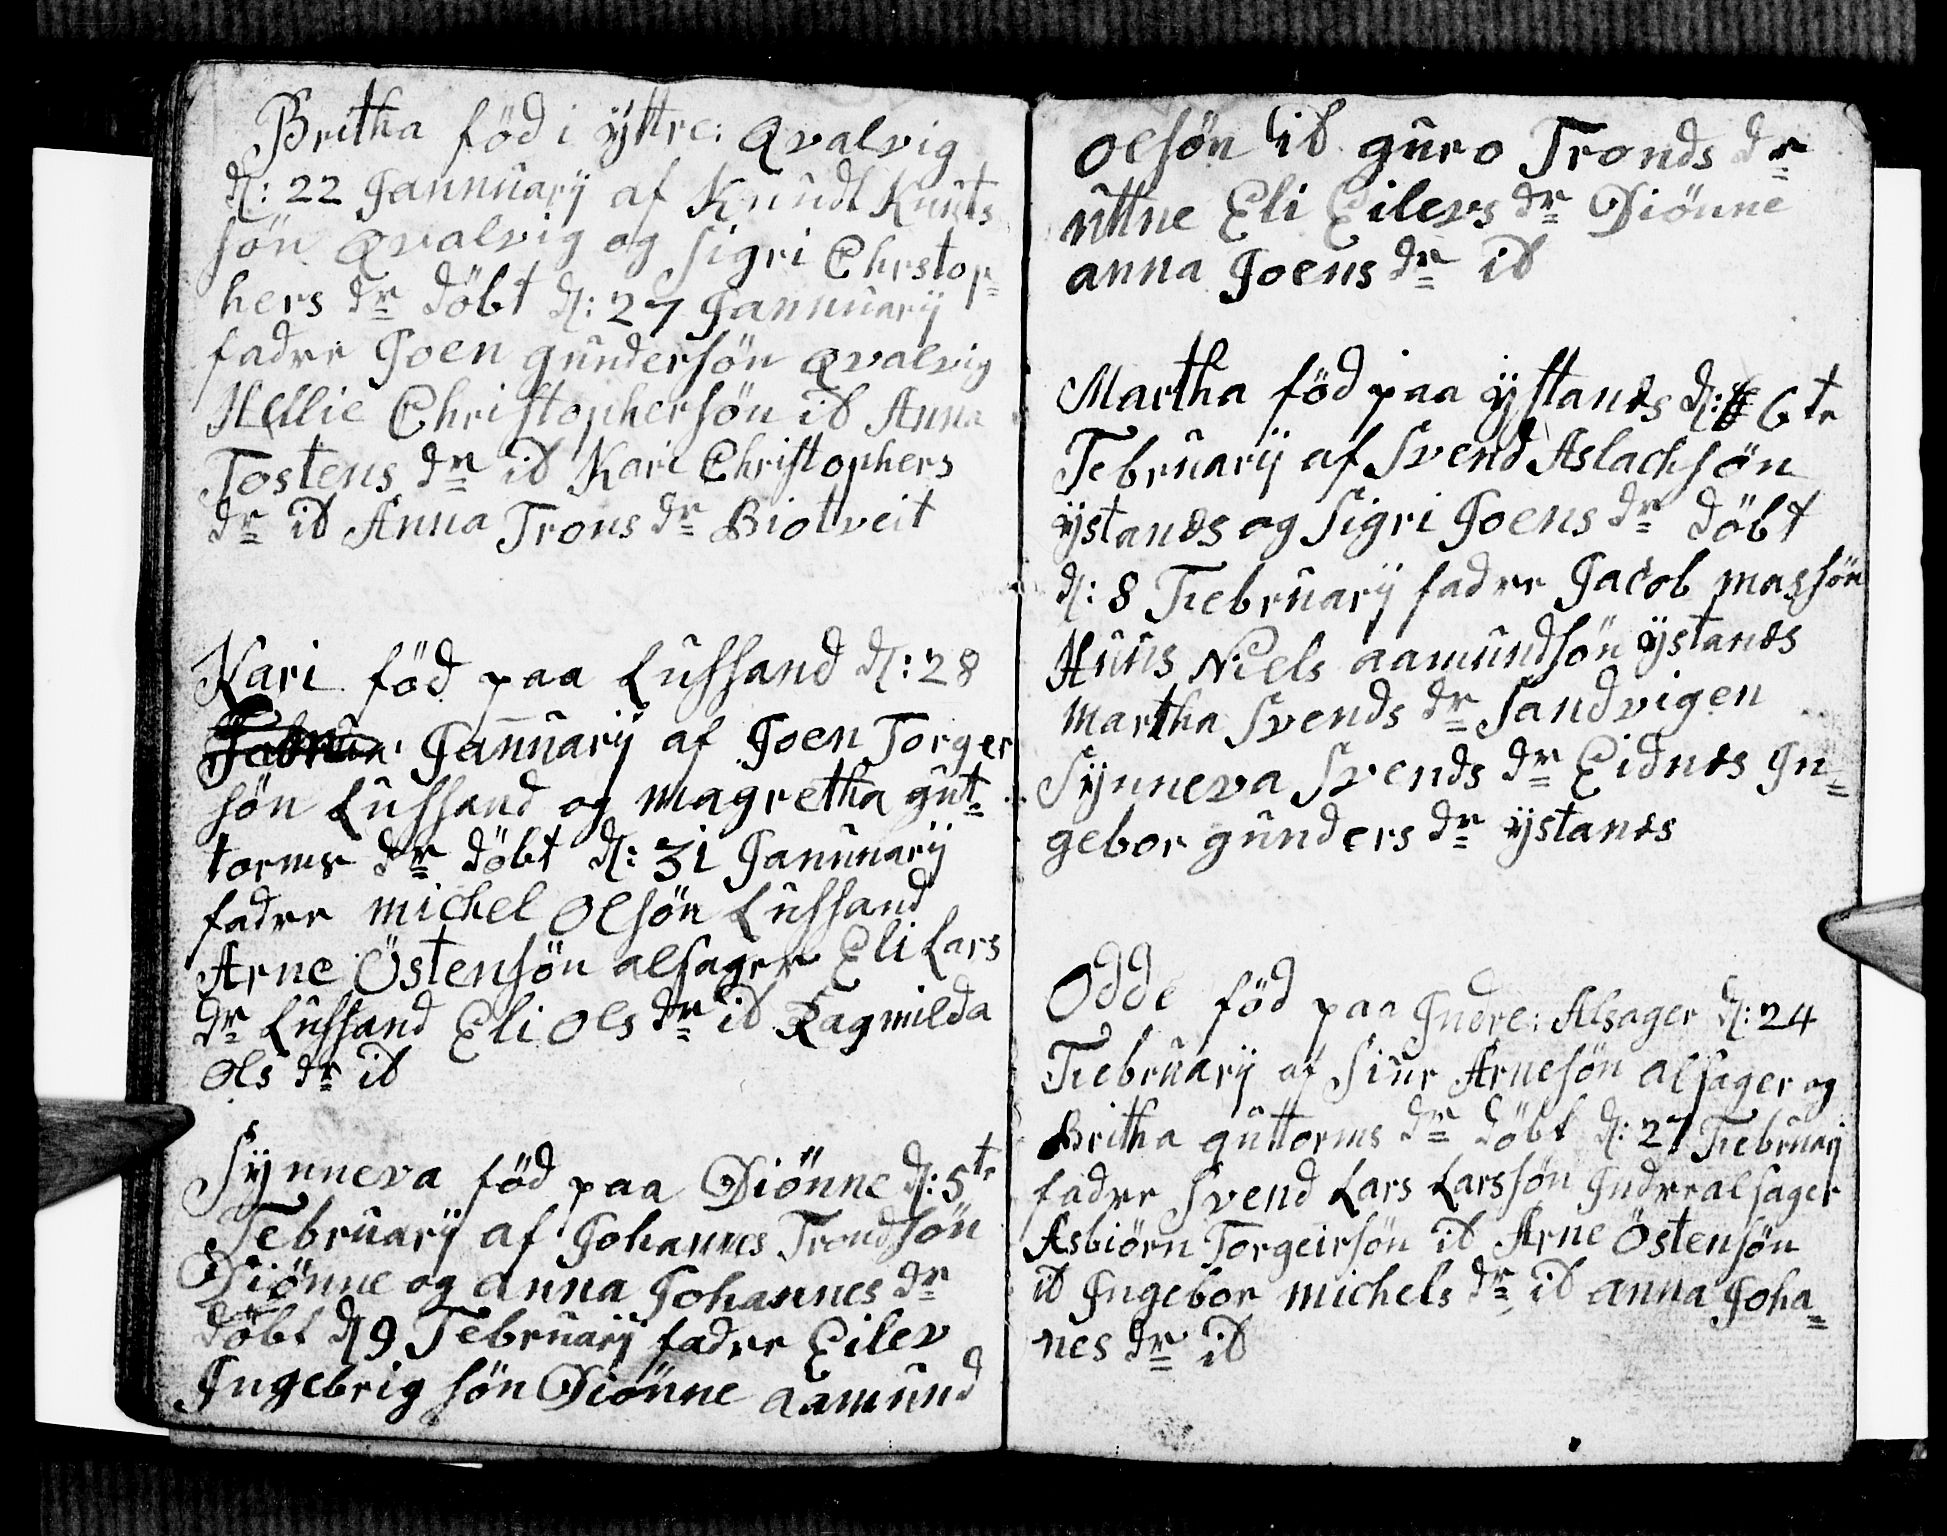 Britha föd i ÿttre: Qvalvig
d: 22 Jannuarÿ af Knudt Knuts
sön Qvalvig og Sigri Chrstop=
hers dr döbt d: 27 Jannuarÿ
fadre Joen gundersön Qvalvig
Hellie Christophersön id Anna
Tostens dr id Kari Christophers
dr id Anna Trons dr Biotveit
Kari föd paa Lussand d: 28
Januarÿ af Joen Torger
sön Lussand og Magretha gut=
torms dr döbt d: 31 Januuarÿ
fadre michel Olsön Lussand
Arne Östensön alsager Eli Lars
dr Lussand Eli Ols dr id Ragnilda
Ols dr id
Synneva föd paa Diönne d: 5te
Februarÿ af Johannes Trondsön
Diönne og Anna Johannes dr
döbt d 9 Februarÿ fadre Eilev
Ingebrig sön Diönne aamund
Olsön id guro Tronds dr
uttne Eli Eilevs dr Diönne
anna Joens dr id
Martha föd paa ÿstanes d: 6te
Februarÿ af Svend Aslachsön
ÿstanes og Sigri Joens dr döbt
d: 8 Februarÿ fadre Jacob massön
Huus Niels aamundsön ÿstanes
Martha Svends dr Sandvigen
Synneva Svends dr Eidnes In=
gebor gunders dr ÿstanes
Odde föd paa Indre: Alsager d: 24
Februarÿ af Siur Arnesön alsager og
Britha guttorms dr döbt d: 27 Februarÿ
fadre Svend Lars Larssön Indrealsager
Asbiörn Torgeirsön id Arne Östensön
id Ingebor michels dr id anna Joha=
nes dr id